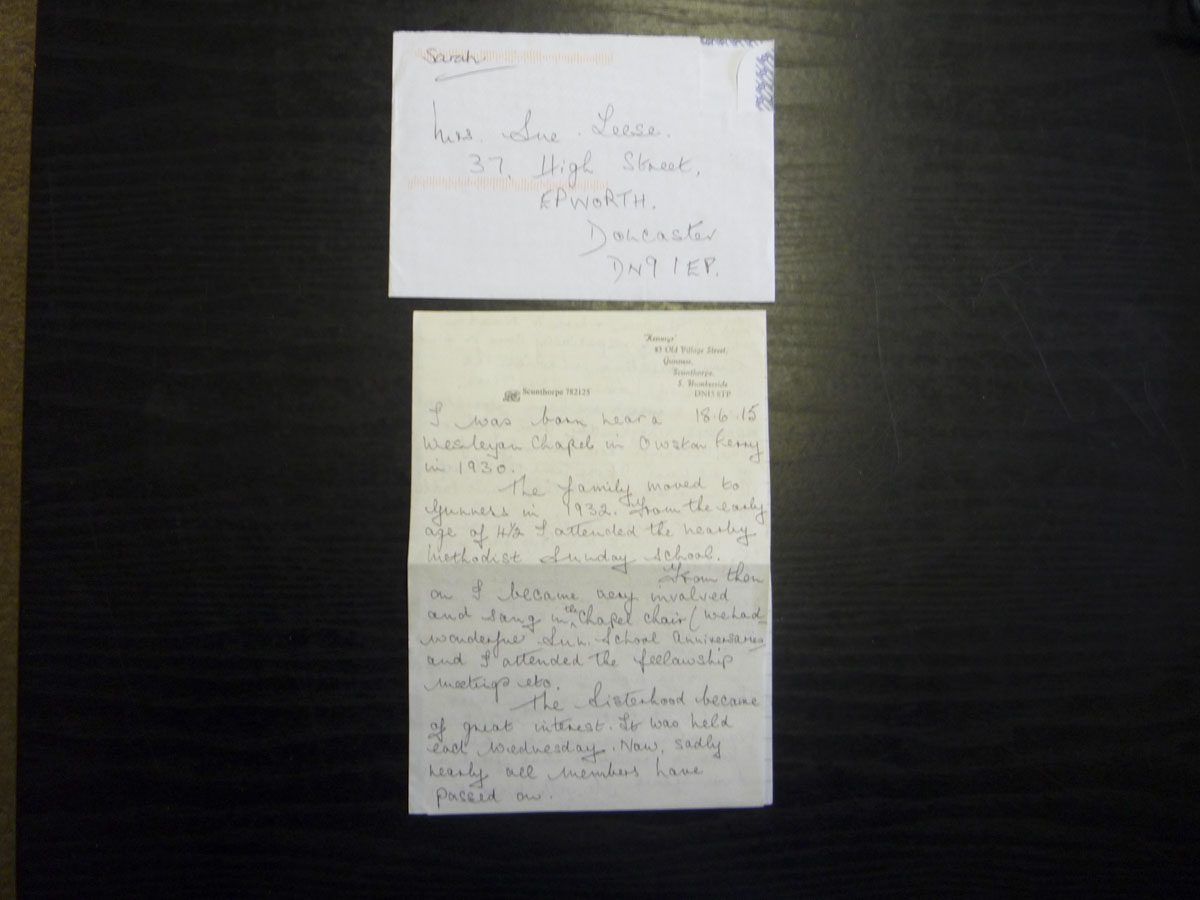 Sarah
Mrs. Sue Leese.
37, High Street,
EPWORTH.
Doncaster
DN9 1EP.
83 Old Village Street,
Gunness,
Scunthorpe,
S. Humberside
DN15 8TP
Scunthorpe 782125
I was born near a 18.6.15
Wesleyan Chapel in Owston Ferry
in 1930.
The family moved to
Gunness in 1932. From the early
age of 4½ I attended the nearby
Methodist Sunday School.
From then
on I became very involved
and sang in the Chapel choir (we had
wonderful Sun. School Anniversaries
and I attended the fellowship
meetings etc.
The Sisterhood became
of great interest. It was held
each Wednesday. Now, sadly
nearly all members have
passed on.